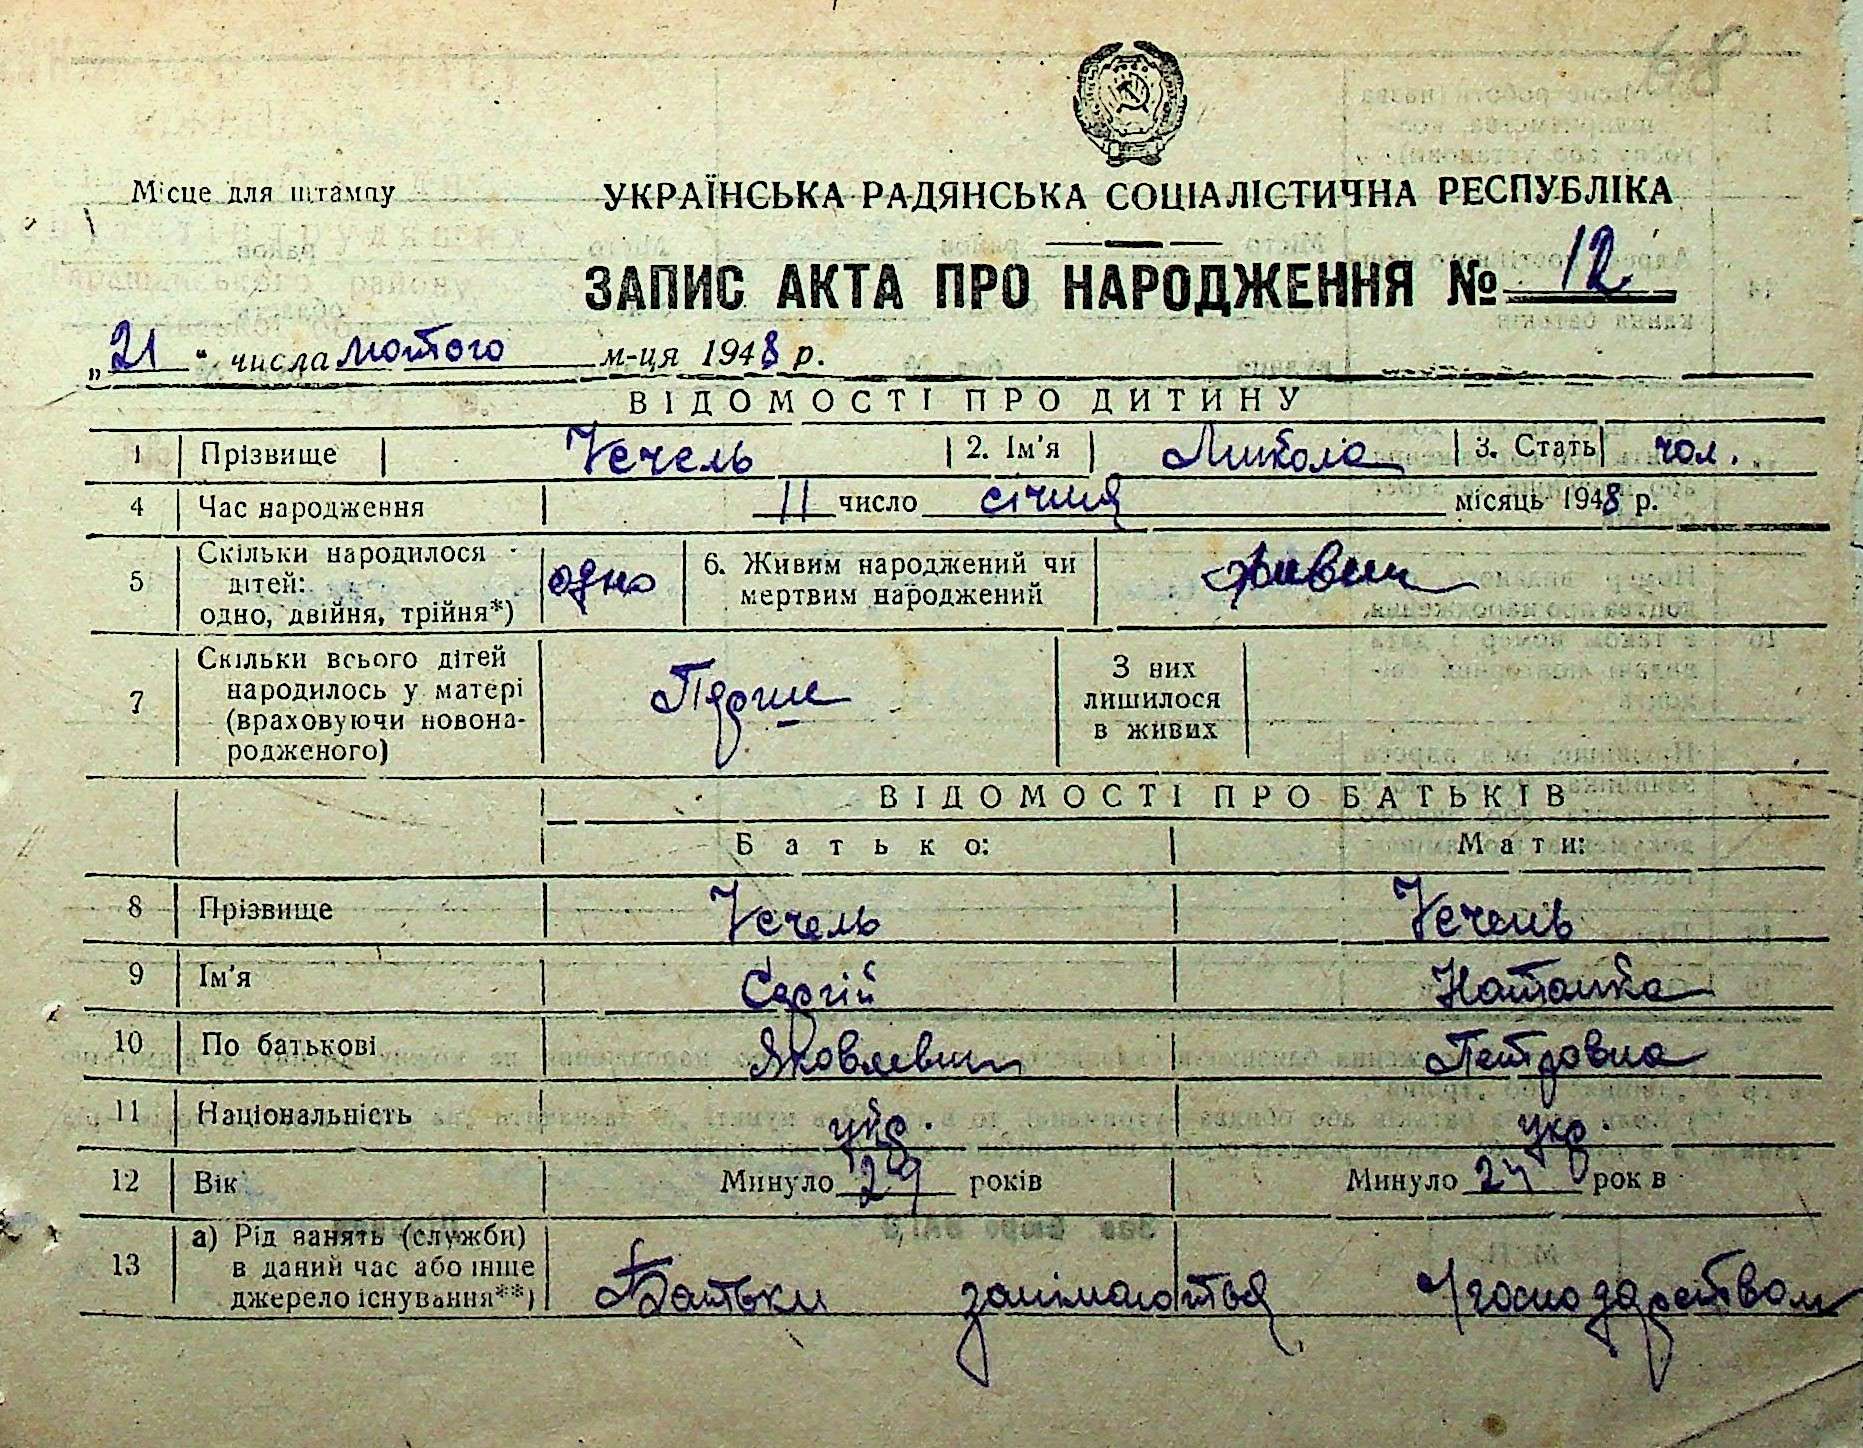 68
Місце для штампу
УКРАЇНСЬКА РАДЯНСЬКА СОЦІАЛІСТИЧНА РЕСПУБЛІКА
ЗАПИС АКТА ПРО НАРОДЖЕННЯ № 12
„21“ числа лютого м-ця 1948 р.
ВІДОМОСТІ ПРО ДИТИНУ
1 Прізвище Чечель 2. Ім'я Микола 3. Стать чол.
4 Час народження 11 число січня місяць 1948 р.
5 Скільки народилося дітей: одно, двійня, трійня*) одно 6. Живим народжений чи мертвим народжений живим
7 Скільки всього дітей народилось у матері (враховуючи новонародженого) Перше З них лишилося в живих
ВІДОМОСТІ ПРО БАТЬКІВ
Батько: Мати:
8 Прізвище Чечель Чечель
9 Ім'я Сергій Наташка
10 По батькові Яковлевич Петровна
11 Національність укр. укр.
12 Вік Минуло 29 років Минуло 24 рок в
13 а) Рід занять (служби) в даний час або інше джерело існування**) Батьки занімаються господарством